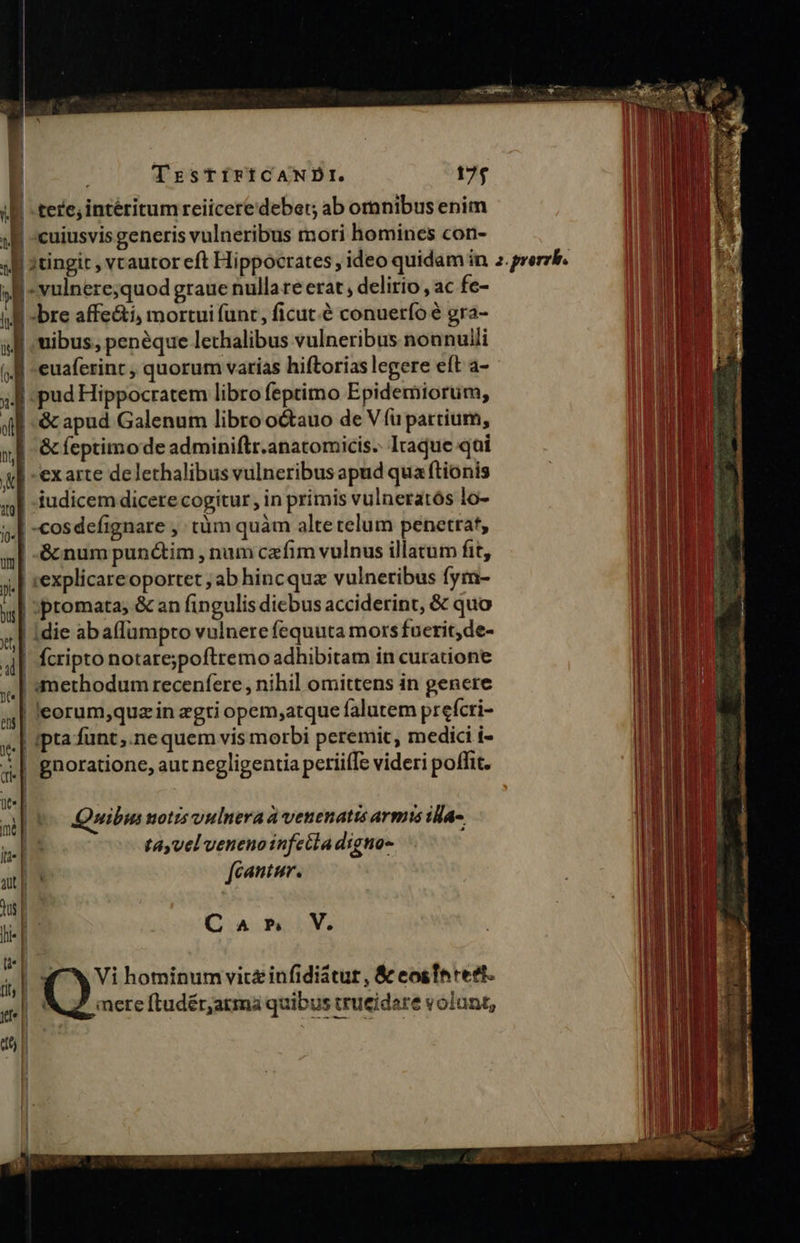 TESTIFICANDI. 175
tere, intéritum reiicere debet; ab omnibus enim
cuiusvis generis vulneribus mori homines con-
tingit, vt autor eſt Hippocrates, ideo quidam in 2. prorrh.
vulnere, quod graue nulla re erat, delirio, ac fe-
bre affecti, mortui ſunt, ſicut è conuerſo è gra-
uibus, penèque lethalibus vulneribus nonnulli
euaſerint, quorum varias hiſtorias legere eſt a-
pud Hippocratem libro ſeptimo Epidemiorum,
& apud Galenum libro octauo de Vſu partium,
& ſeptimo de adminiſtr. anatomicis. Itaque qui
ex arte de lethalibus vulneribus apud quæſtionis
iudicem dicere cogitur, in primis vulneratos lo-
cos deſignare, tùm quàm alte telum penetrat,
& num punctim, num cæſim vulnus illatum ſit,
explicare oportet, ab hinc quæ vulneribus ſym-
ptomata, & an ſingulis diebus acciderint, & quo
die ab aſſumpto vulnere ſequuta mors fuerit, de-
ſcripto notare; poſtremo adhibitam in curatione
methodum recenſere, nihil omittens in genere
eorum, quæ in ægti opem, atque ſalutem preſcri-
pta ſunt, ne quem vis morbi peremit, medici i-
gnoratione, aut negligentia periiſſe videri poſſit.
Quibus notis vulnera à venenatis armis illa-
ta, vel veneno infecta digno-
ſcantur.
CAP. V.
QVi hominum vitæ inſidiātur, & eos interi-
mere ſtudēt, arma quibus trucidare volunt,